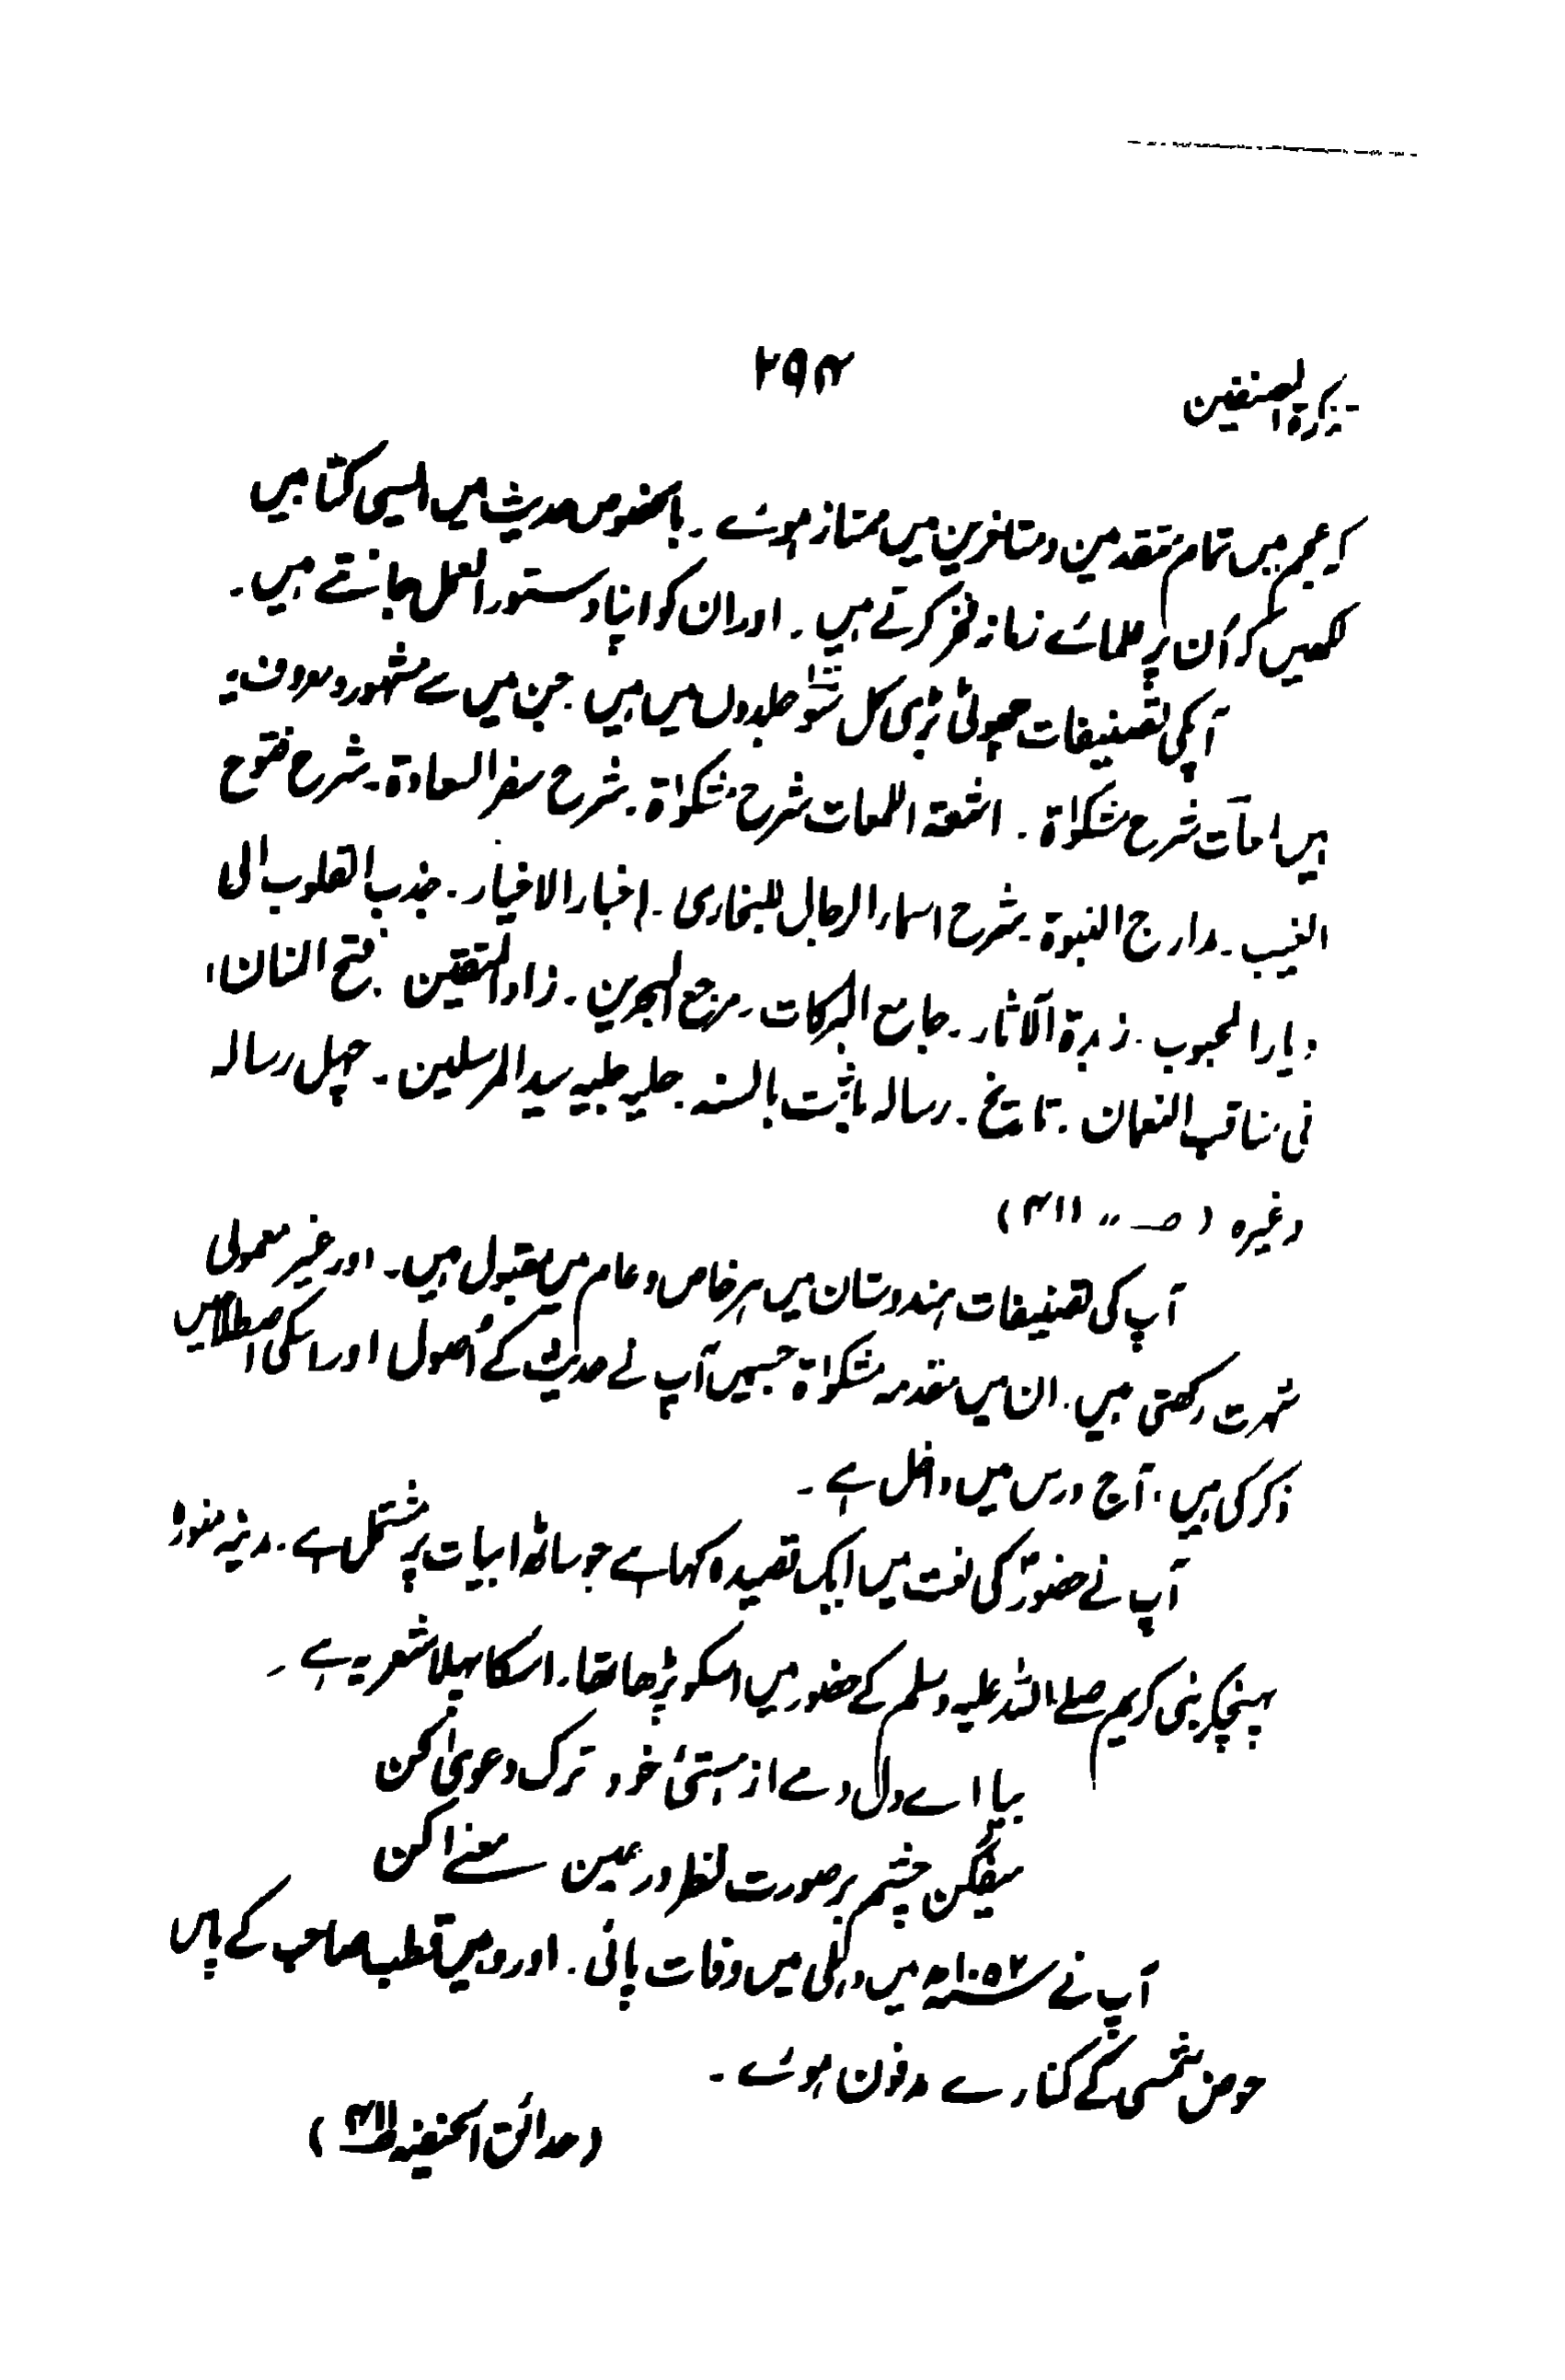 تذکرۃ المصنفین
۲۹۴
کہ عجم میں تمام متقدمین و متاخرین میں ممتاز ہوئے ۔ بالخصوص حدیث میں ایسی کتابیں
لکھیں کہ اُن پر علمائے زمانہ فخر کرتے ہیں ۔ اور ان کو اپنا دستور العمل جانتے ہیں ۔
آپکی تصنیفات چھوٹی بڑی کل سَو جلدوں میں ہیں ۔ جن میں سے مشہور و معروف یہ
ہیں لمعات شرح مشکوٰۃ ۔ اشعۃ اللمعات شرح مشکوٰۃ ۔ شرح سفر السعادۃ ۔ شرح فتوح
الغیب ۔ مدارج النبوۃ ۔ شرح اسماء الرجال للبخاری ۔ اخبار الاخیار ۔ جذب القلوب الی
دیار المحبوب ۔ زبدۃ الآثار ۔ جامع البرکات ۔ مرجع البحرین ۔ زاد المتقین ۔ فتح المنان،
فی مناقب النعمان ۔ تاریخ ۔ رسالہ ماثبت بالسنہ ۔ حلیہ حلیہ سید المرسلین ۔ چہل رسالہ
وغیرہ ( صـ ؍؍ ۴۱۱)
آپ کی تصنیفات ہندوستان میں ہر خاص و عام میں مقبول ہیں ۔ اور غیر معمولی
شہرت رکھتی ہیں ۔ ان میں مقدمہ مشکوٰۃ جسمیں آپ نے حدیث کے اُصول اور اسکی اصطلاحیں
ذکر کی ہیں ، آج درس میں داخل ہے ۔
آپ نے حضورؐ کی نعت میں ایک قصیدہ کہا ہے جو ساٹھ ابیات پر مشتمل ہے ۔ مدینہ منورہ
پہنچکر نبی کریم صلے اللہ علیہ وسلم کے حضور میں اسکو پڑھا تھا ۔ اسکا پہلا شعر یہ ہے ۔
بیا اے دل دمے از ہستیٔ خود ترک دعویٰ کن
میفگن چشم بر صورت نظر در عین معنےٰ کن
آپ نے ۱۰۵۲ھ میں دہلی میں وفات پائی ۔ اور وہیں قطب صاحب کے پاس
حوض شمسی کے کنارے مدفون ہوئے ۔
(حدائق الحنفیہ صـ ۴۱۱)